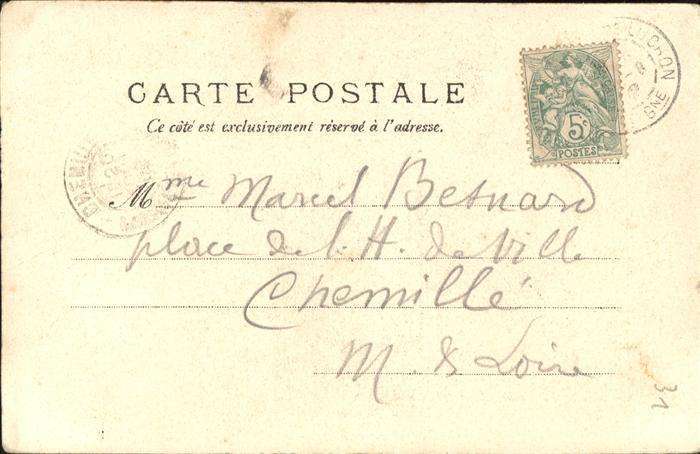 CARTE POSTALE
Ce côté est exclusivement réservé à l'adresse.
5c
POSTES
CHEMILL
Mme Marcel Besnard
place de l. H. de Ville
Chemillé
M. & Loire
31